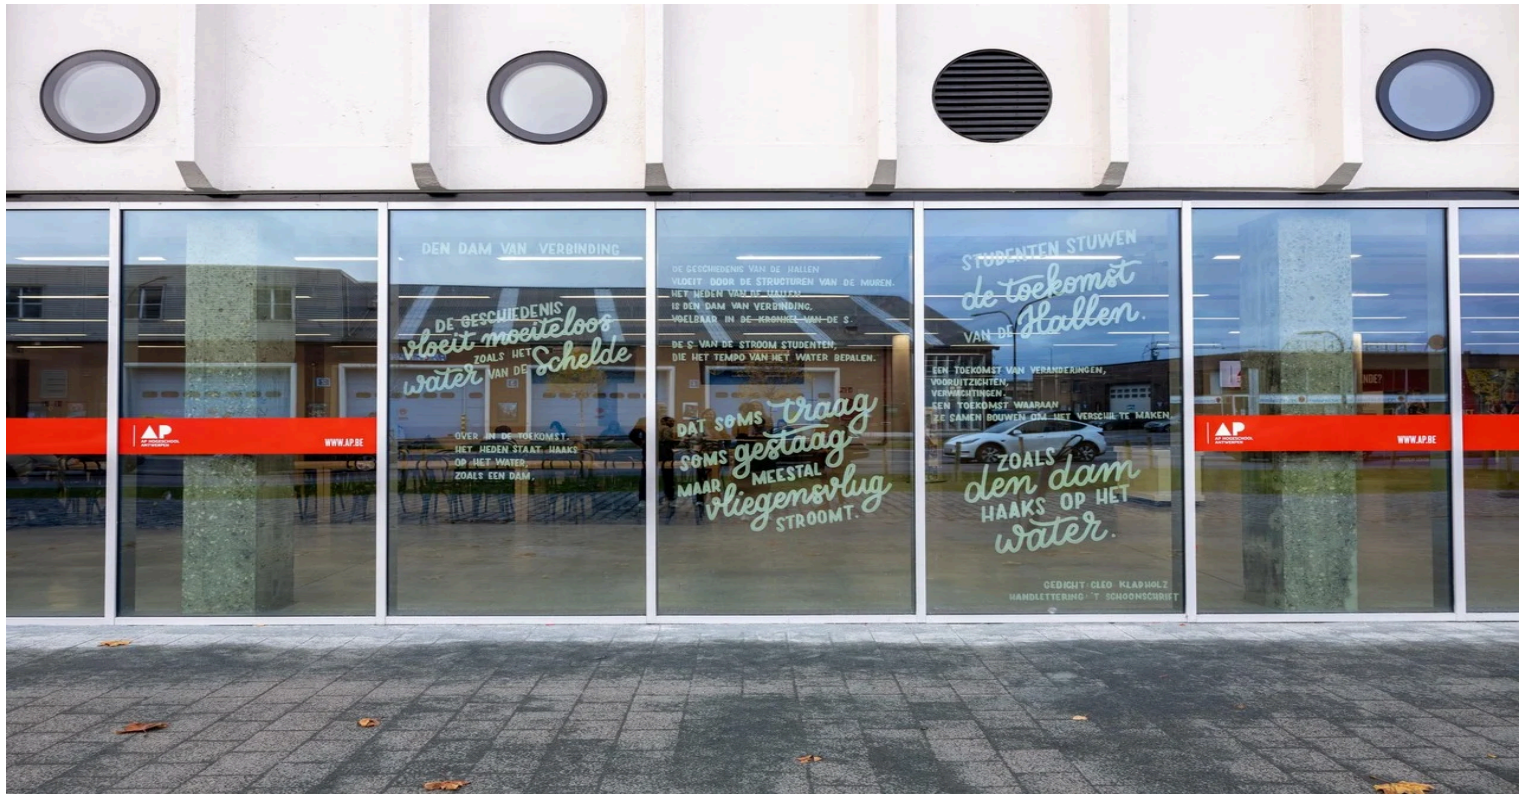 AP
AP HOGESCHOOL
ANTWERPEN
WWW.AP.BE
DEN DAM VAN VERBINDING
DE GESCHIEDENIS
vloeit moeiteloos
ZOALS HET
water VAN DE Schelde
OVER IN DE TOEKOMST.
HET HEDEN STAAT HAAKS
OP HET WATER,
ZOALS EEN DAM,
DE GESCHIEDENIS VAN DE HALLEN
VLOEIT DOOR DE STRUCTUREN VAN DE MUREN.
HET HEDEN VAN DE HALLEN
IS DEN DAM VAN VERBINDING,
VOELBAAR IN DE KRONKEL VAN DE S.
DE S VAN DE STROOM STUDENTEN,
DIE HET TEMPO VAN HET WATER BEPALEN.
DAT SOMS traag
SOMS gestaag
MAAR MEESTAL
vliegensvlug
STROOMT.
STUDENTEN STUWEN
de toekomst
VAN DE Hallen.
EEN TOEKOMST VAN VERANDERINGEN,
VOORUITZICHTEN,
VERWACHTINGEN.
EEN TOEKOMST WAARAAN
ZE SAMEN BOUWEN OM HET VERSCHIL TE MAKEN,
ZOALS
den dam
HAAKS OP HET
water.
GEDICHT: CLEO KLAPHOLZ
HANDLETTERING: 'T SCHOONSCHRIFT
AP
AP HOGESCHOOL
ANTWERPEN
WWW.AP.BE